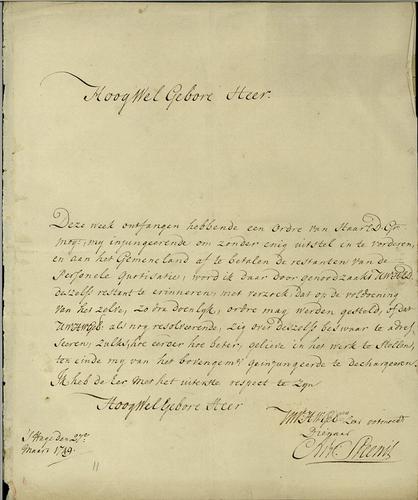 Hoog Wel Gebore Heer.
Deze week ontfangen hebbende een ordre van Haar Ed. Gr.
Mog:, my injungeerende om zonder enig uitstel in te vorderen,
en aan het Gemeene land af te betalen de restanten van de
Personele Quotisatie; word ik daar door genoodzaakt
deszelfs restant te erinneren; met verzoek dat op de voldoening
van het zelve, zo dra doenlyk, ordre mag werden gesteld, of dat
als nog resolveerende, zig over deszelfs beswaar te adres
seeren, zulks hoe eerder hoe beter, gelieve in het werk te stellen,
ten einde my van het bovengem: geinjungeerde te dechargeeren.
Ik heb de Eer met het uiterste respect te zyn
Hoog Wel Gebore Heer
ootmoedt
Dienaar
's Hage den
Maart 1749.